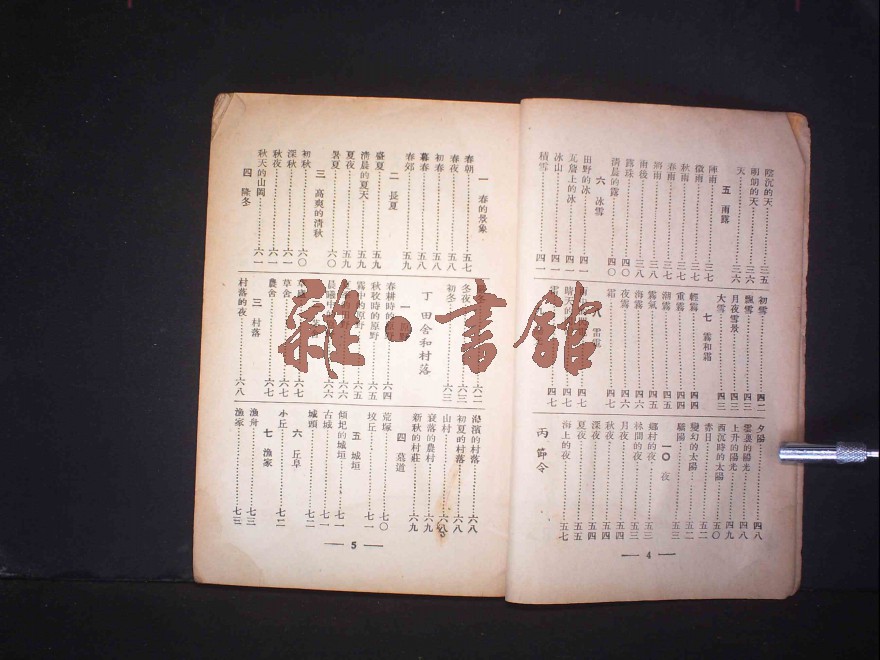 陰沉的天……三五
明朗的天……三六
天……三六
五 雨露
陣雨……三七
微雨……三七
秋雨……三八
春雨……三八
雨後……三八
露珠……四〇
清晨的露……四〇
六 冰雪
田野的冰……四一
瓦簷上的冰……四一
冰山……四一
積雪……四一
初雪……四二
飄雪……四三
月夜雪景……四三
大雪……四三
七 霧和霜
輕霧……四四
重霧……四四
潮霧……四五
霧氣……四五
海霧……四六
夜霧……四六
霜……四七
八 雷電
晴天的
夕陽……四八
雲裏的陽光……四八
上升的陽光……四九
西沉時的太陽……五〇
赤日……五二
變幻的太陽……五二
驕陽……五三
一〇 夜
鄉村的夜……五三
林間的夜……五三
月夜……五四
秋夜……五四
深夜……五五
夏夜……五五
海上的夜……五七
丙 節令
— 4 —
一 春的景象
春朝……五七
春夜……五八
初春……五八
暮春……五八
春郊……五九
二 長夏
盛夏……五九
清晨的夏天……五九
夏夜……五九
暑夏……六〇
三 高爽的清秋
初秋……六〇
深秋……六一
秋夜……六一
秋天的山岡……六一
四 殘冬
冬夜……六三
初冬……六三
丁 田舍和村落
春耕時的原野……六四
秋收時的原野……六五
霧中的原野……六五
草舍……六七
農舍……六七
三 村落
村落的夜……六八
港濱的村落……六八
初夏的村落……六八
山村……六八
衰落的農村……六九
新秋的村莊……六九
四 墓道
荒塚……七〇
墳丘……七一
五 城垣
傾圮的城垣……七一
古城……七一
城頭……七二
六 丘阜
小丘……七二
七 漁家
漁舟……七三
漁家……七三
— 5 —
雜·書館